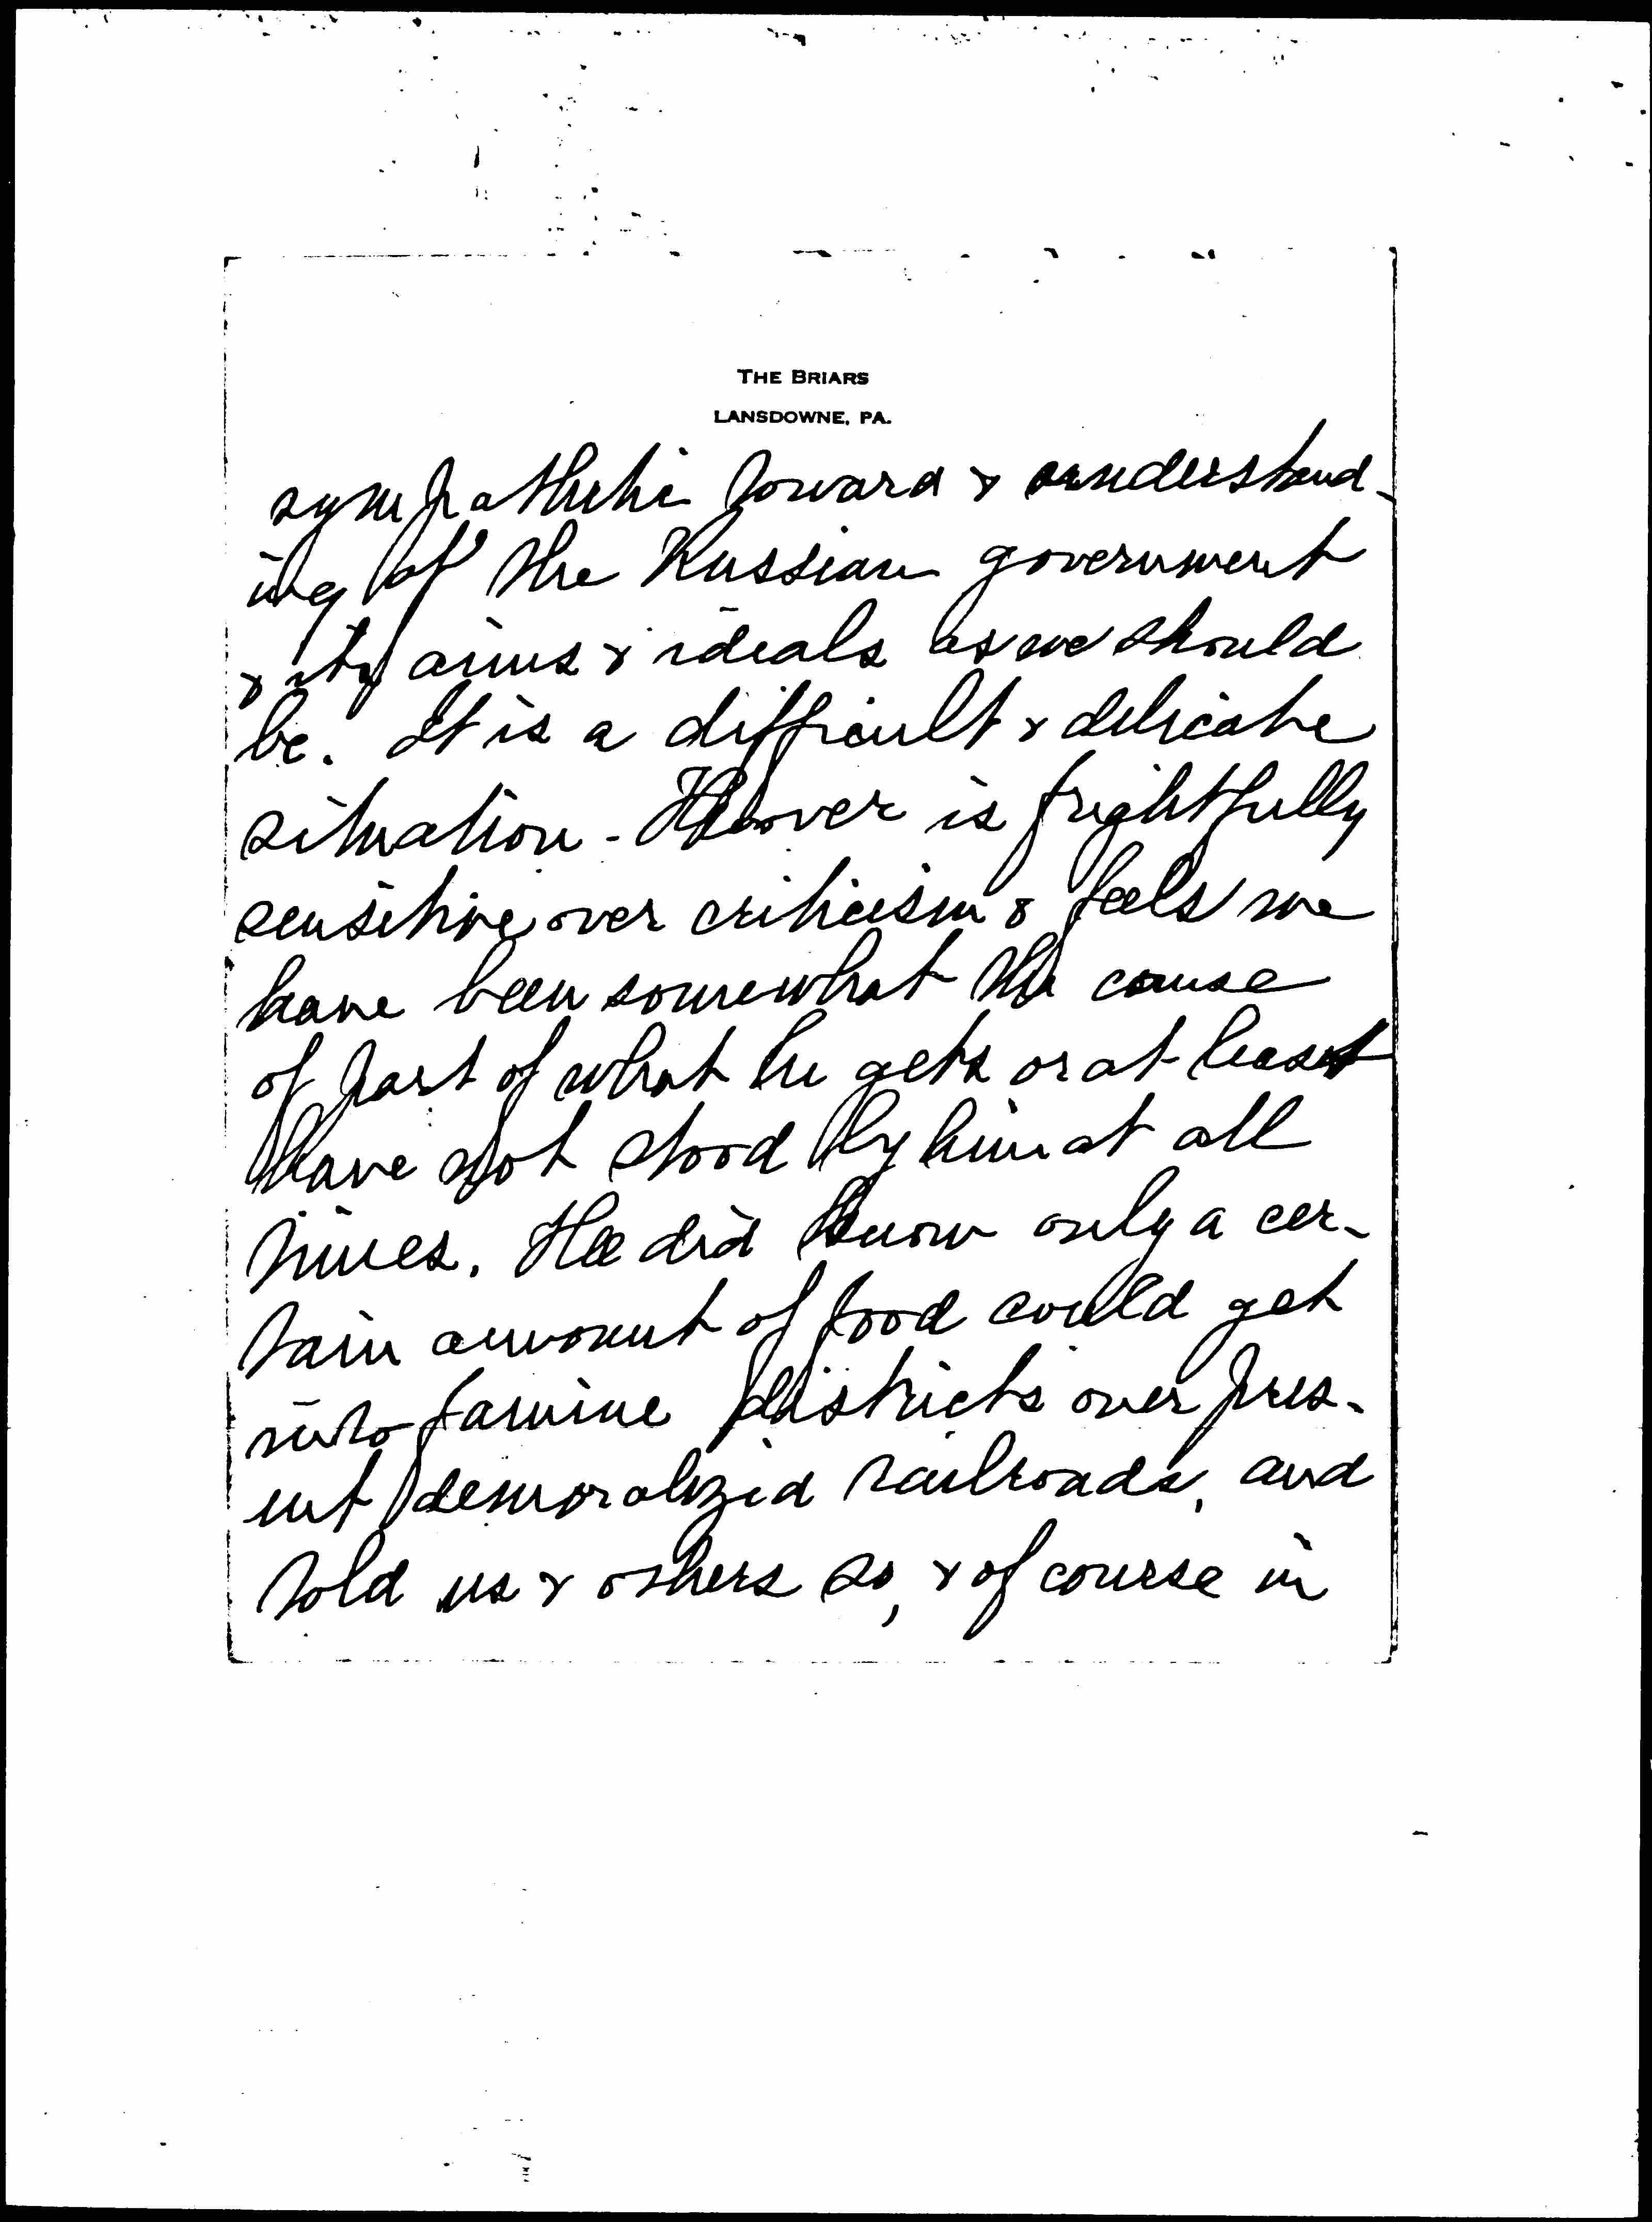 THE BRIARS
LANSDOWNE, PA.
sympathetic toward & understand-
ing of the Russian government
& its aims & ideals as we should
be. It is a difficult & delicate
situation - Hoover is frightfully
sensitive over criticism & feels we
have been somewhat the cause
of part of what he gets or at least
have not stood by him at all
times. He did know only a cer-
tain amount of food could get
into famine districts over pres-
ent demoralized railroads, and
told us & others so, & of course in